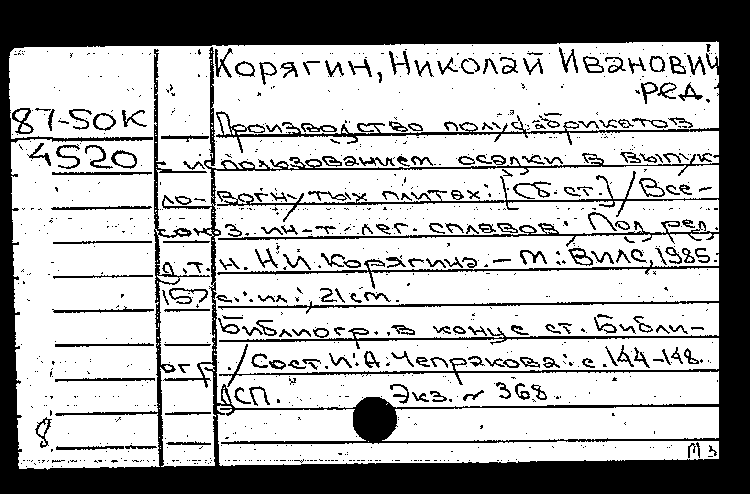 Корягин, Николай Иванович
ред.
87-50К
4520
Производство полуфабрикатов
с использованием осадки в выпук-
ло-вогнутых плитах: [Сб. ст.] / Все-
союз. ин-т лег. сплавов. Под ред.
д.т.н. Н.И. Корягина. - М: ВИЛС, 1985.
157 с.: ил.; 21 см.
Библиогр. в конце ст. Библи-
огр. / Сост. И.А. Чепракова: с. 144-148.
ДСП. Экз. № 368.
8